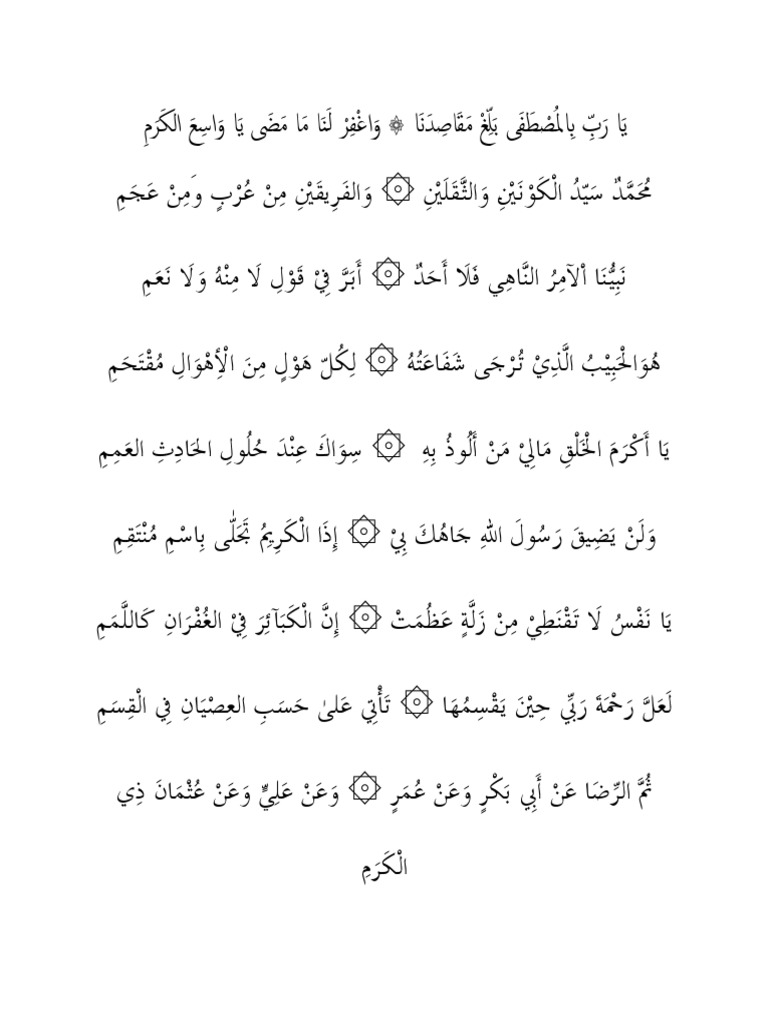 يَا رَبِّ بِالمُصْطَفَى بَلِّغْ مَقَاصِدَنَا ۞ وَاغْفِرْ لَنَا مَا مَضَى يَا وَاسِعَ الكَرَمِ
مُحَمَّدٌ سَيِّدُ الْكَوْنَيْنِ وَالثَّقَلَيْنِ ۞ وَالفَرِيقَيْنِ مِنْ عُرْبٍ وَمِنْ عَجَمِ
نَبِيُّنَا اْلآمِرُ النَّاهِي فَلَا أَحَدٌ ۞ أَبَرَّ فِيْ قَوْلِ لَا مِنْهُ وَلَا نَعَمِ
هُوَالْحَبِيْبُ الَّذِيْ تُرْجَى شَفَاعَتُهُ ۞ لِكُلّ هَوْلٍ مِنَ الْأِهْوَالِ مُقْتَحَمِ
يَا أَكْرَمَ الْخَلْقِ مَالِيْ مَنْ أَلُوذُ بِهِ ۞ سِوَاكَ عِنْدَ حُلُولِ الحَادِثِ العَمِمِ
وَلَنْ يَضِيقَ رَسُولَ اللهِ جَاهُكَ بِيْ ۞ إِذَا الْكَرِيمُ تَجَلّٰى بِاسْمِ مُنْتَقِمِ
يَا نَفْسُ لَا تَقْنَطِيْ مِنْ زَلَّةٍ عَظُمَتْ ۞ إِنَّ الْكَبَآئِرَ فِيْ الغُفْرَانِ كَاللَّمَمِ
لَعَلَّ رَحْمَةَ رَبِّي حِيْنَ يَقْسِمُهَا ۞ تَأْتِي عَلىٰ حَسَبِ العِصْيَانِ فِي الْقِسَمِ
ثُمَّ الرِّضَا عَنْ أَبِي بَكْرٍ وَعَنْ عُمَرٍ ۞ وَعَنْ عَلِيٍّ وَعَنْ عُثْمَانَ ذِي
الْكَرَمِ